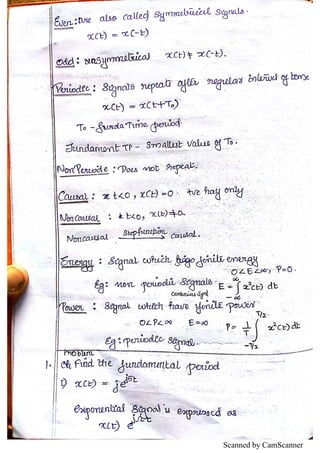 Even : are also called Symmetrical Signals.
x(t) = x(-t)
Odd : unsymmetrical x(t) ≠ x(-t).
Periodic : Signals repeats after regular interval of time
x(t) = x(t+T₀)
T₀ - funda Time period.
Fundament TP - Smallest Value of T₀.
Non Periodic : Does not repeat.
Causal : t<0, x(t)=0. +ve hay only
Non causal : t<0, x(t)≠0.
Noncausal Step function causal.
Energy : Signal which finite energy
0<E<∞, P=0.
Eg: non periodic signals E = ∫ x²(t) dt
∞
-∞
Power : Signal which have finite power
0<P<∞ E=∞ P = 1/T ∫ x²(t) dt
T/2
-T/2
Eg : periodic signal.
Problem
1. Find the fundamental period
1) x(t) = je^j5t
exponential signal is expressed as
x(t) e^jωt
Scanned by CamScanner